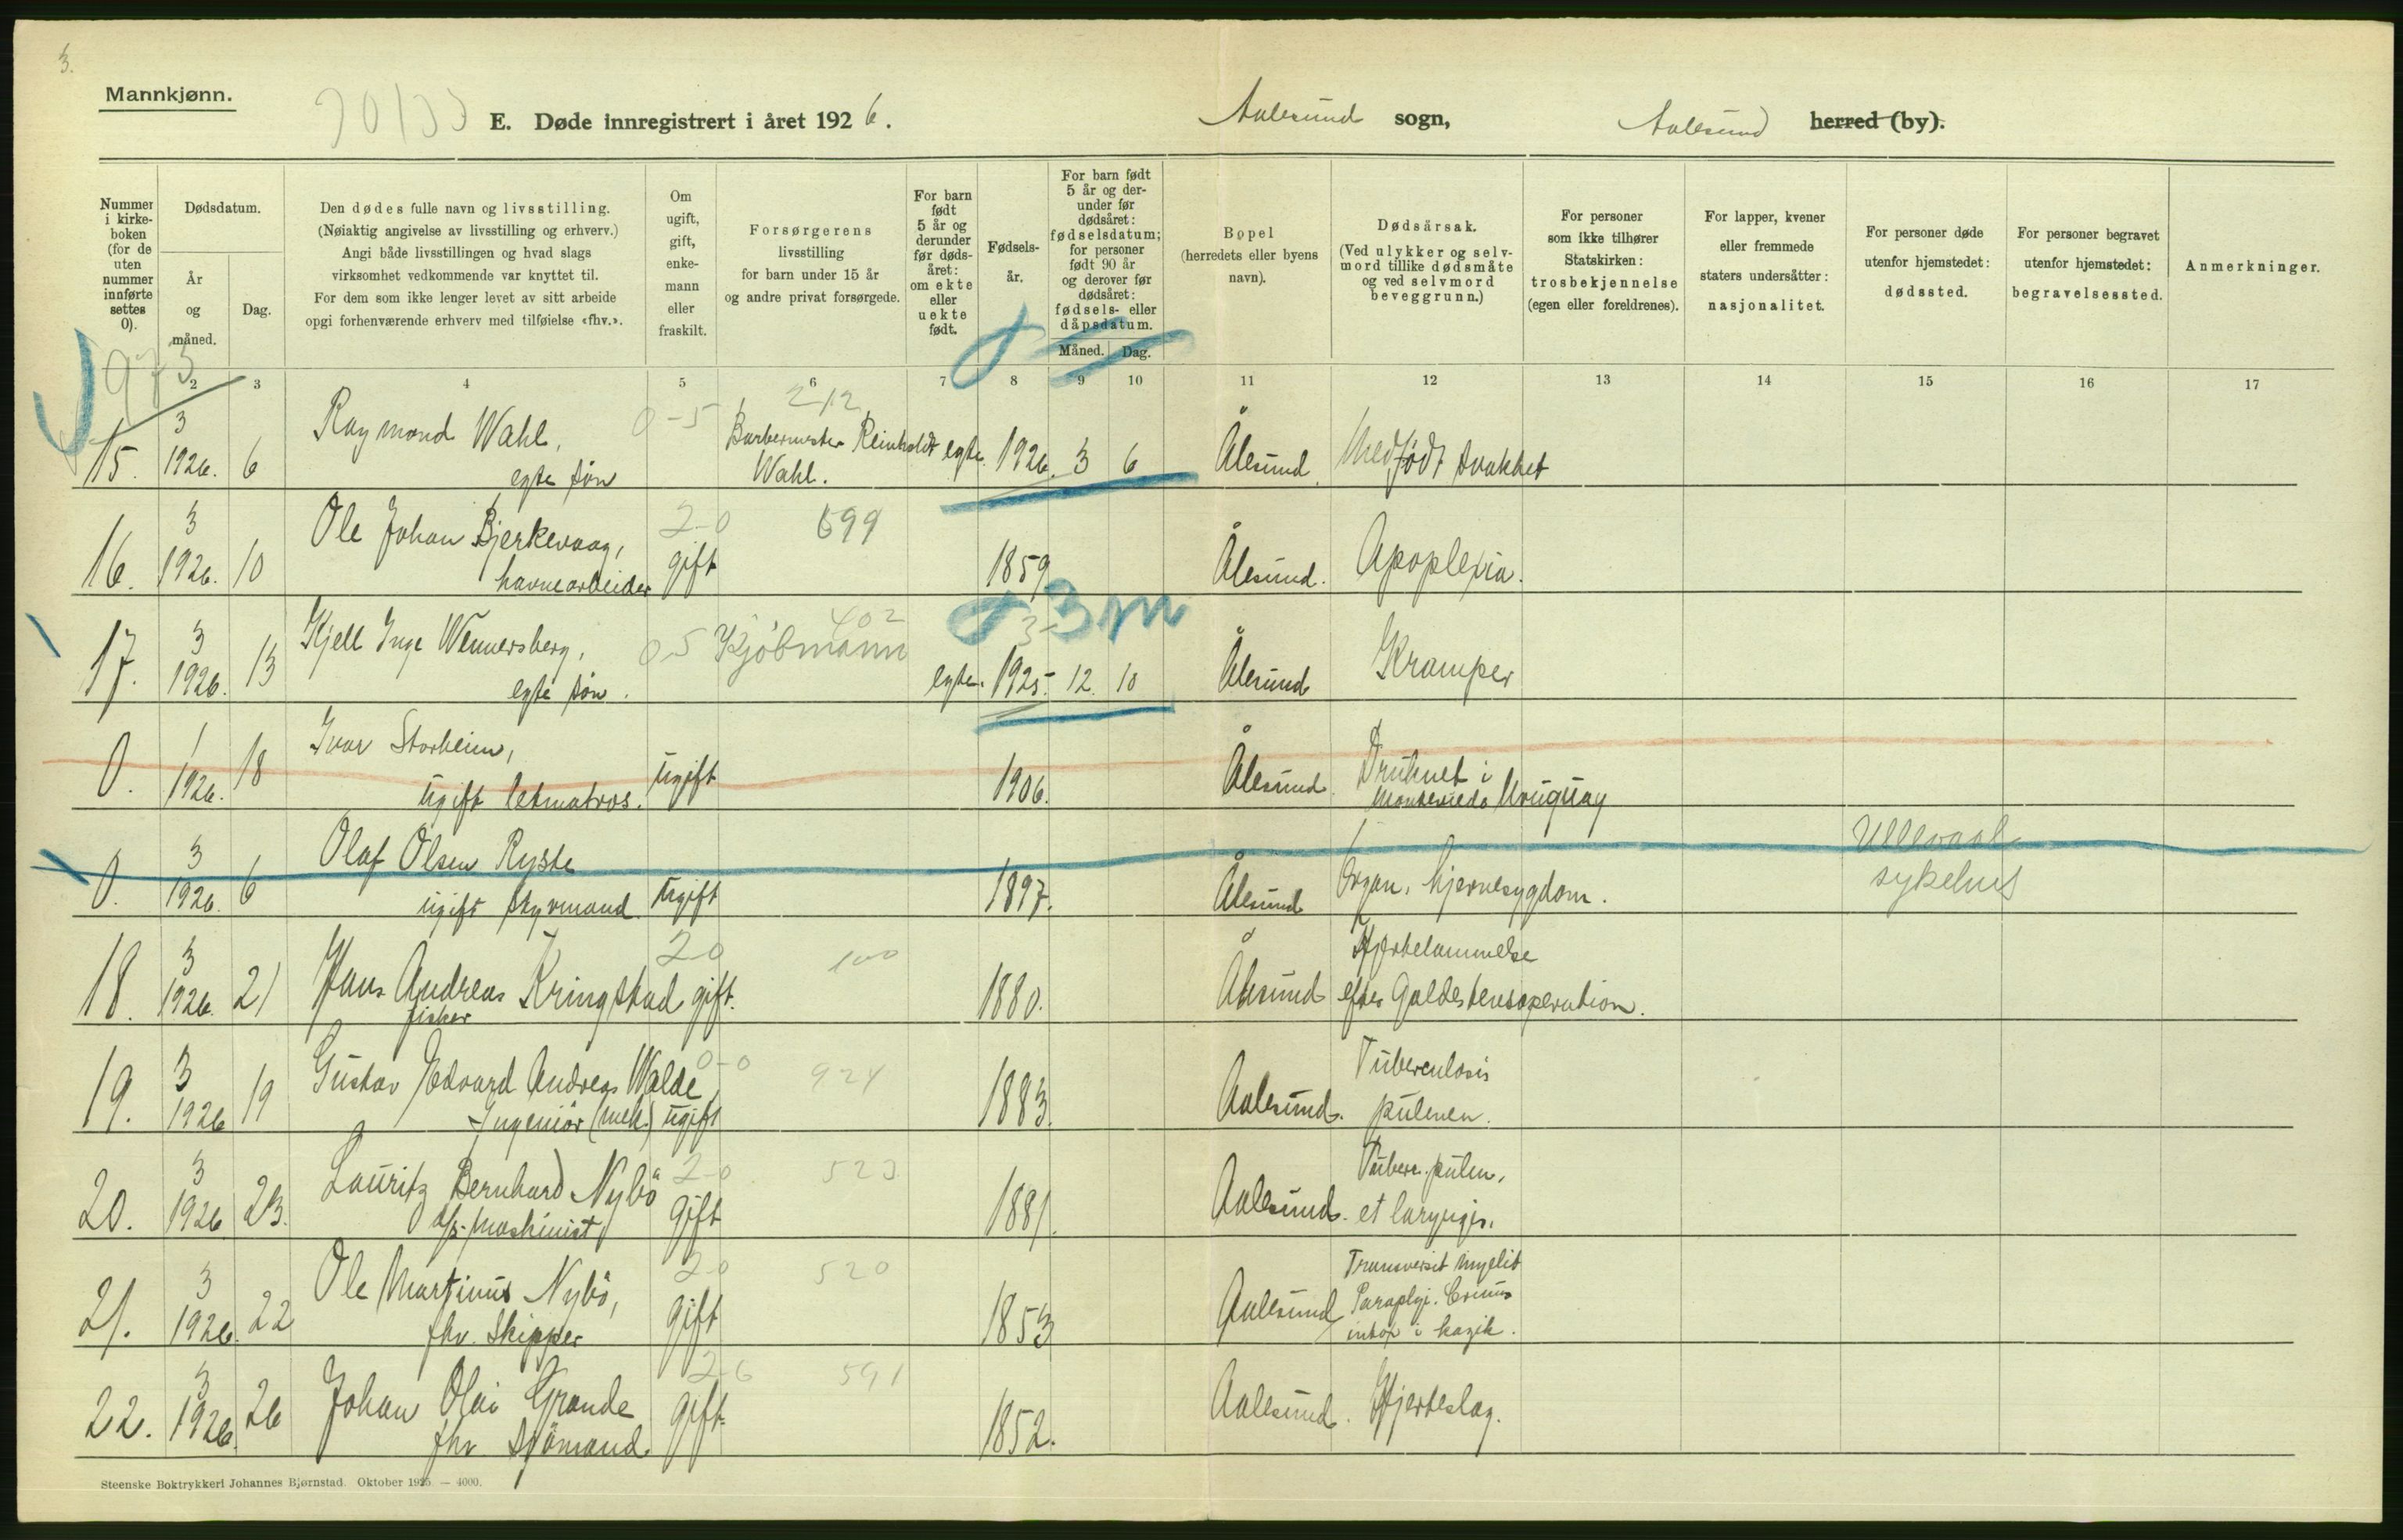 3.
Mannkjønn.
E. Døde innregistrert i året 1926.
Aalesund sogn,
Aalesund herred (by).
Nummer i kirke-boken (for de uten nummer innførte settes 0).
Dødsdatum.
År og måned.
Dag.
Den dødes fulle navn og livsstilling.
(Nøiaktig angivelse av livsstilling og erhverv.)
Angi både livsstillingen og hvad slags
virksomhet vedkommende var knyttet til.
For dem som ikke lenger levet av sitt arbeide
opgi forhenværende erhverv med tilføielse «fhv.».
Om ugift, gift, enke-mann eller fraskilt.
Forsørgerens
livsstilling
for barn under 15 år
og andre privat forsørgede.
For barn født 5 år og derunder før døds-året: om ekte eller uekte født.
Fødsels-år.
For barn født 5 år og der-under før dødsåret: fødselsdatum; for personer født 90 år og derover før dødsåret: fødsels- eller dåpsdatum.
Måned. Dag.
Bopel
(herredets eller byens navn).
Dødsårsak.
(Ved ulykker og selv-mord tillike dødsmåte og ved selvmord beveggrunn.)
For personer
som ikke tilhører
Statskirken:
trosbekjennelse
(egen eller foreldrenes).
For lapper, kvener
eller fremmede
staters undersåtter:
nasjonalitet.
For personer døde
utenfor hjemstedet:
dødssted.
For personer begravet
utenfor hjemstedet:
begravelsessted.
Anmerkninger.
973
2 3 4 5 6 7 8 9 10 11 12 13 14 15 16 17
15. 3 1926. 6 Raymond Wahl, egte søn 0-5 212 Barbermester Reinholdt Wahl. egte 1926. 3 6 Ålesund. Medfødt svakhet
16. 3 1926. 10 Ole Johan Bjerkevaag, havnearbeider 2-0 gift 699 1859 Ålesund. Apoplexia.
17. 3 1926. 13 Kjell Inge Wennersberg, egte søn. 0-5 402 Kjöbmann egte. 1925. 12. 10 3m Ålesund Kramper
0. 1 1926. 18 Ivar Storheim, ugift letmatros. ugift 1906. Ålesund. Druknet i Montevideo Uruguay
0. 3 1926. 6 Olaf Olsen Ryste ugift styrmand. ugift 1897. Ålesund Organ. hjernesygdom. Ullevaal sykehus
18. 3 1926. 21 Hans Andreas Kringstad fisker 20 gift. 100 1880. Ålesund Hjertelammelse efter Galdestensoperation.
19. 3 1926 19 Gustav Edvard Andreas Walde, Ingeniør (mek.) 0-0 ugift 924 1883. Aalesund. Tuberculosis pulmon.
20. 3 1926 23. Lauritz Bernhard Nybö d/s. maskinist 2-0 gift 523 1881. Aalesund. Tuberc. pulm. et laryngis.
21. 3 1926. 22 Ole Martinus Nybö, fhv. skipper 20 gift 520 1853 Aalesund Transversit myelit Paraplgi.
22. 3 1926. 26 Johan Olai Grande fhv sjömand. 2-6 gift 591 1852. Aalesund. Hjerteslag.
Steenske Boktrykkeri Johannes Bjørnstad. Oktober 1925. — 4000.